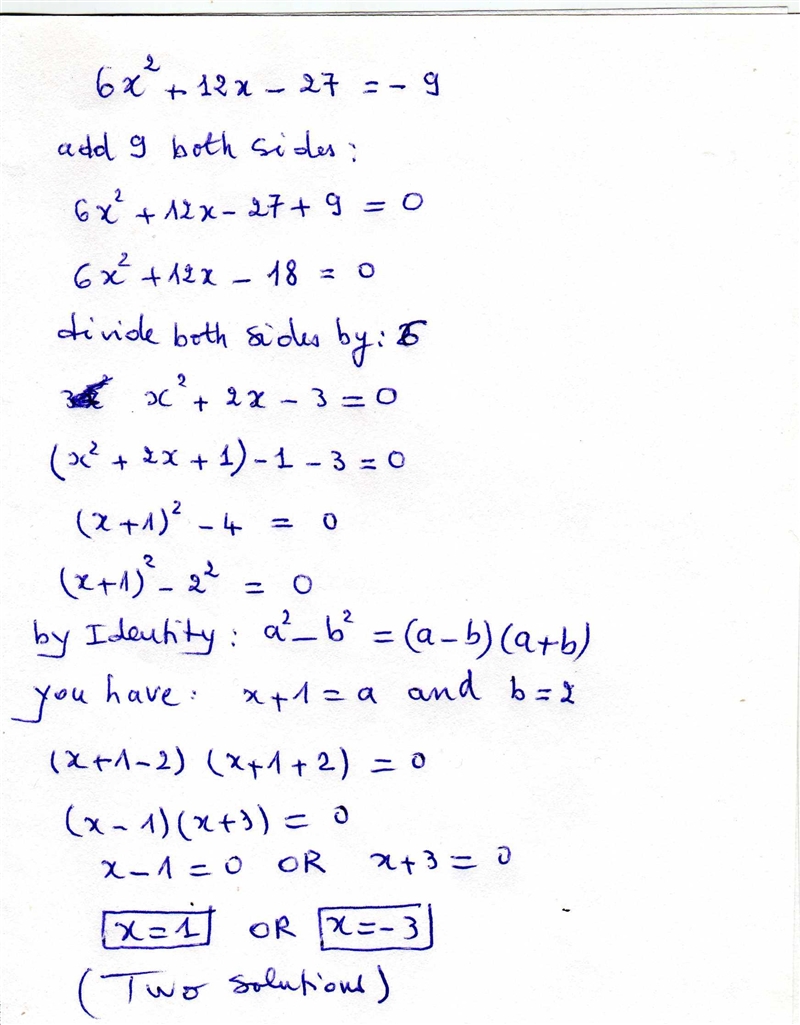 6x² + 12x - 27 = - 9
add 9 both sides:
6x² + 12x - 27 + 9 = 0
6x² + 12x - 18 = 0
divide both sides by: 6
x² + 2x - 3 = 0
(x² + 2x + 1) - 1 - 3 = 0
(x + 1)² - 4 = 0
(x+1)² - 2² = 0
by Identity: a² - b² = (a - b)(a + b)
you have: x + 1 = a and b = 2
(x+1-2) (x+1+2) = 0
(x - 1)(x+3) = 0
x - 1 = 0 OR x + 3 = 0
x = 1 OR x = - 3
(Two solutions)